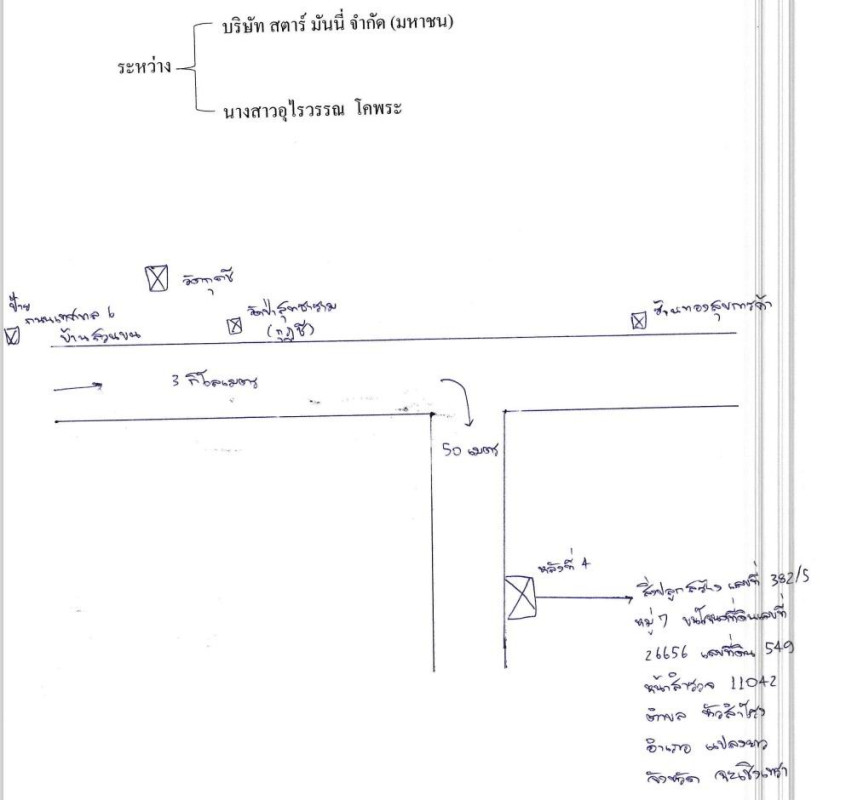 บริษัท สตาร์ มันนี่ จำกัด (มหาชน)
ระหว่าง
นางสาวอุไรวรรณ โคพระ
วัดกุฎชี
ป้าย
ถนนเทศบาล 6
บ้านสวนขน
วัดป่าสุทธาราม
(กุฏชี)
ร้านทองสุขการค้า
3 กิโลเมตร
50 เมตร
หลังที่ 4
สิ่งปลูกสร้าง เลขที่ 382/5
หมู่ 7 บนโฉนดที่ดินเลขที่
26656 เลขที่ดิน 549
หน้าสำรวจ 11042
ตำบล หัวสำโรง
อำเภอ แปลงยาว
จังหวัด ฉะเชิงเทรา